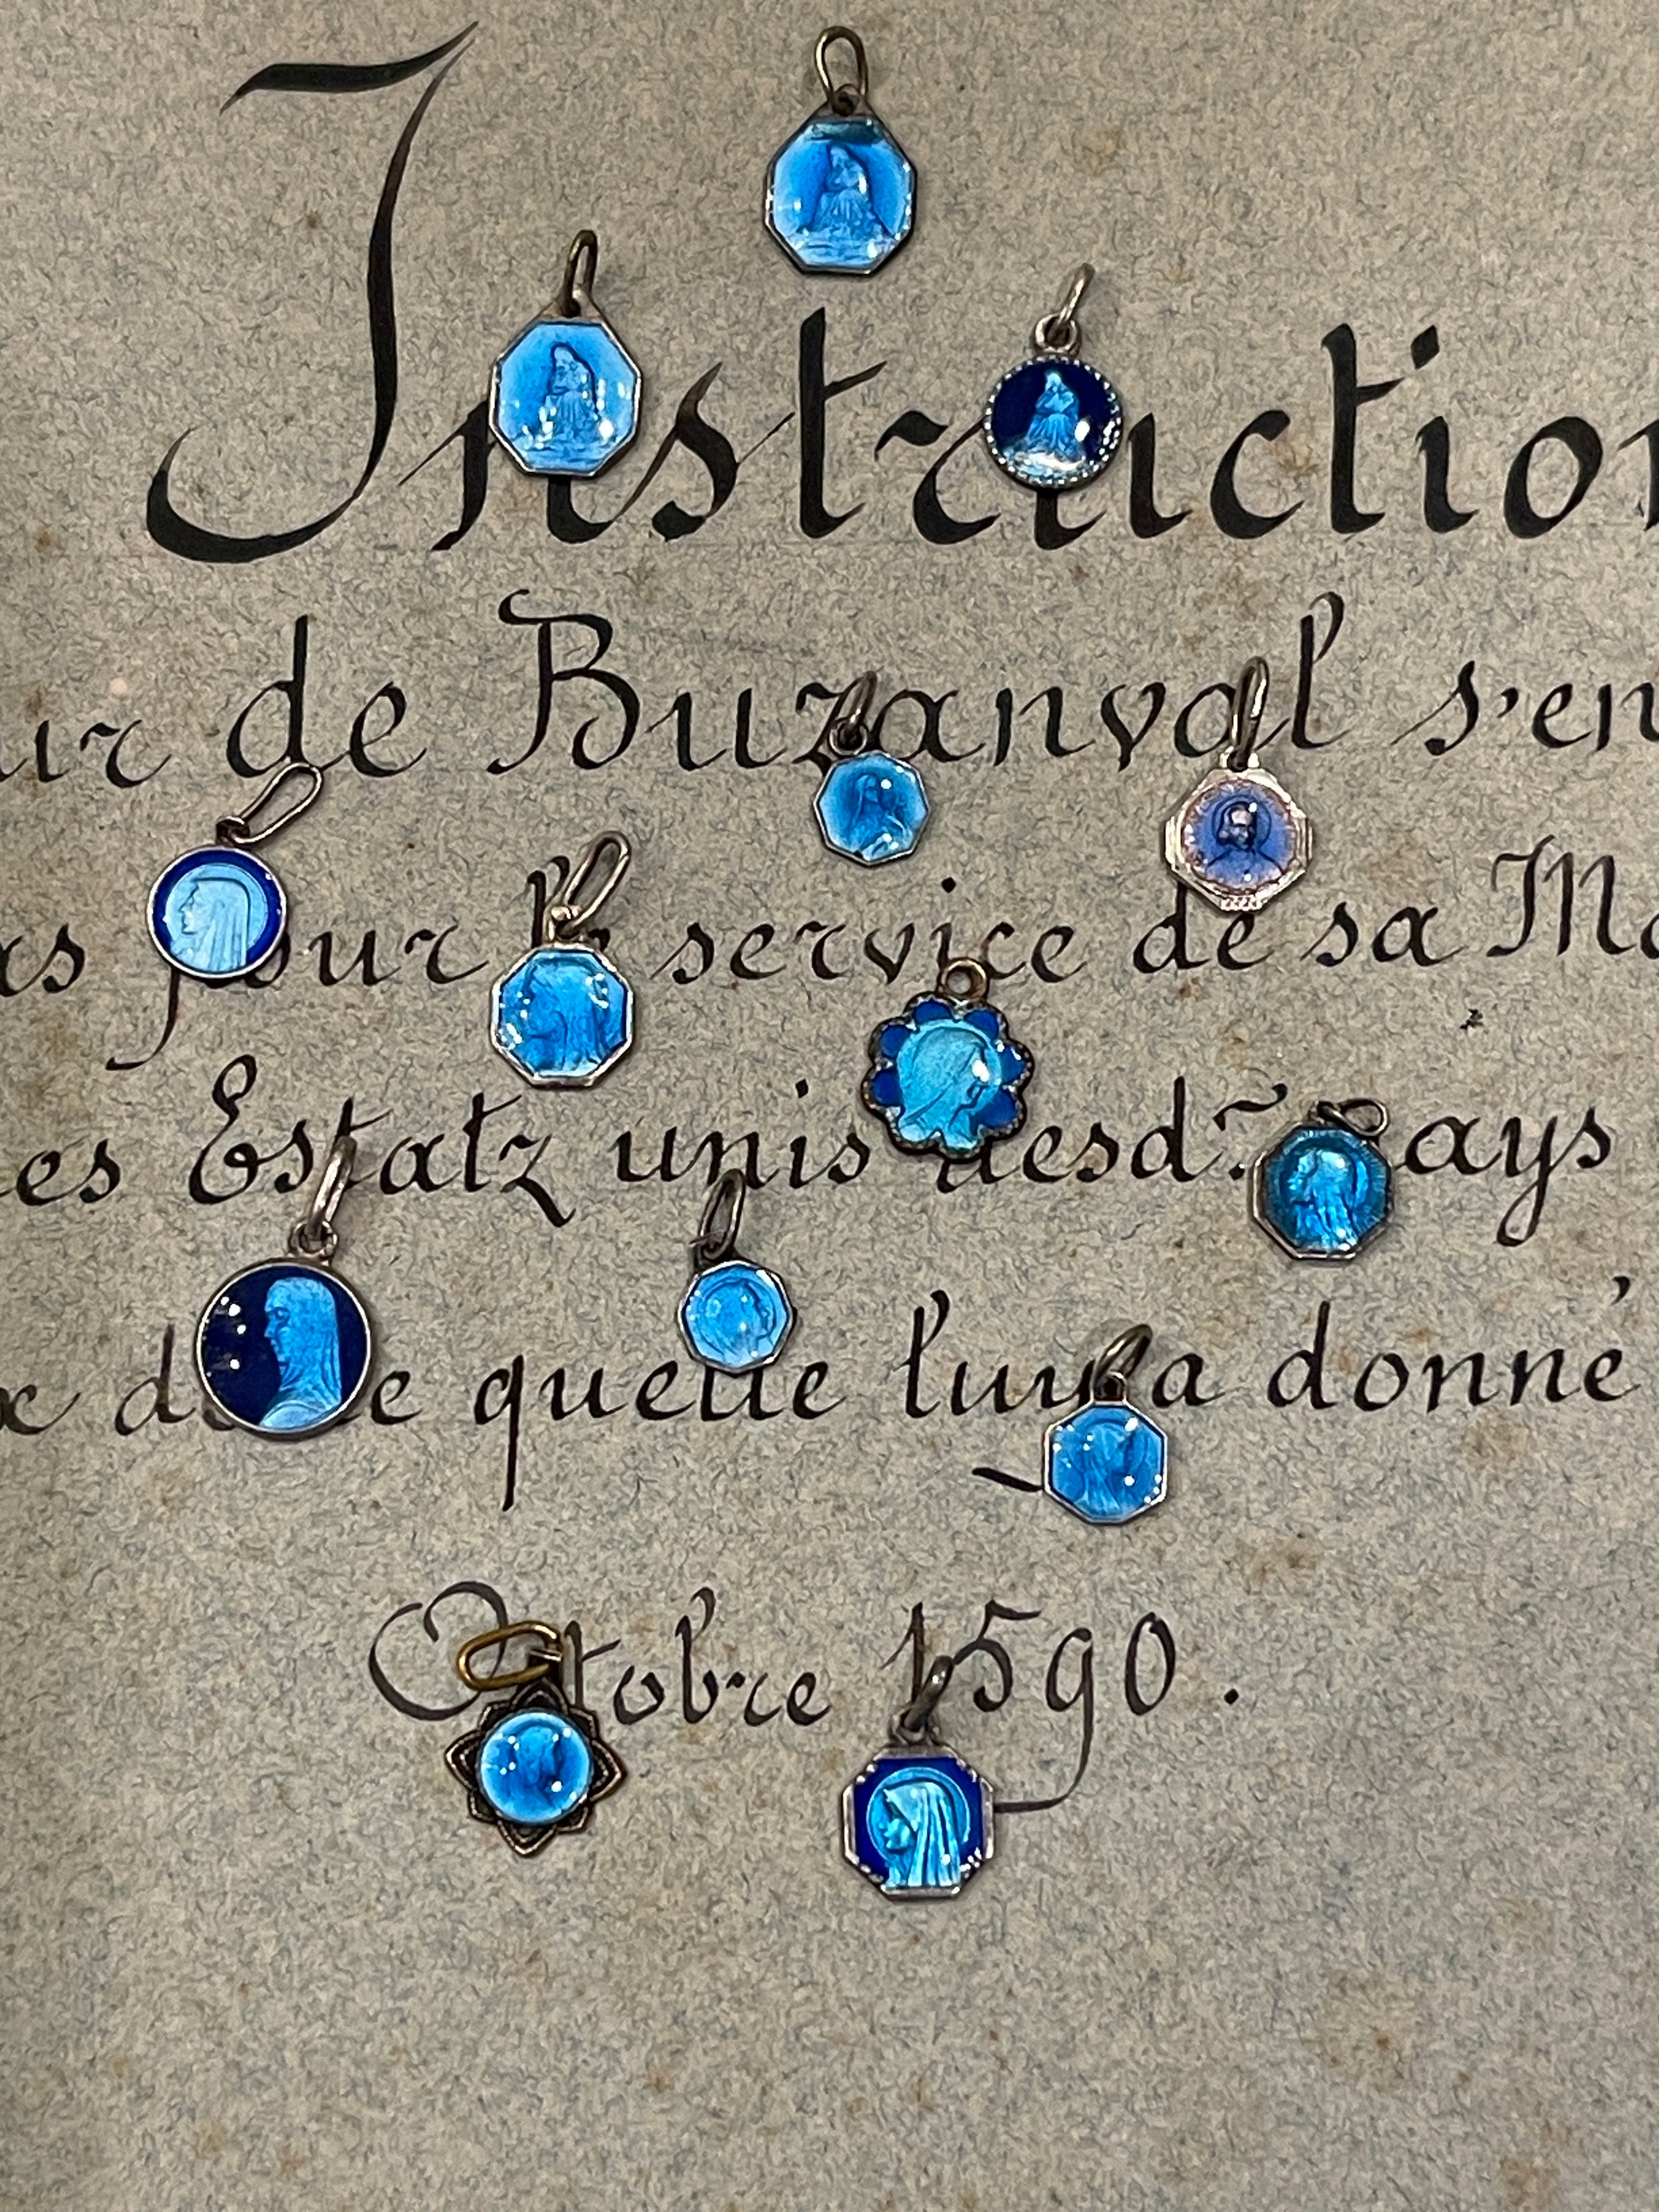 Instruction
ur de Buzanval s'en
as pour le service de sa Ma
es Estatz unis desd. ays
quelle luy a donné
Octobre 1590.